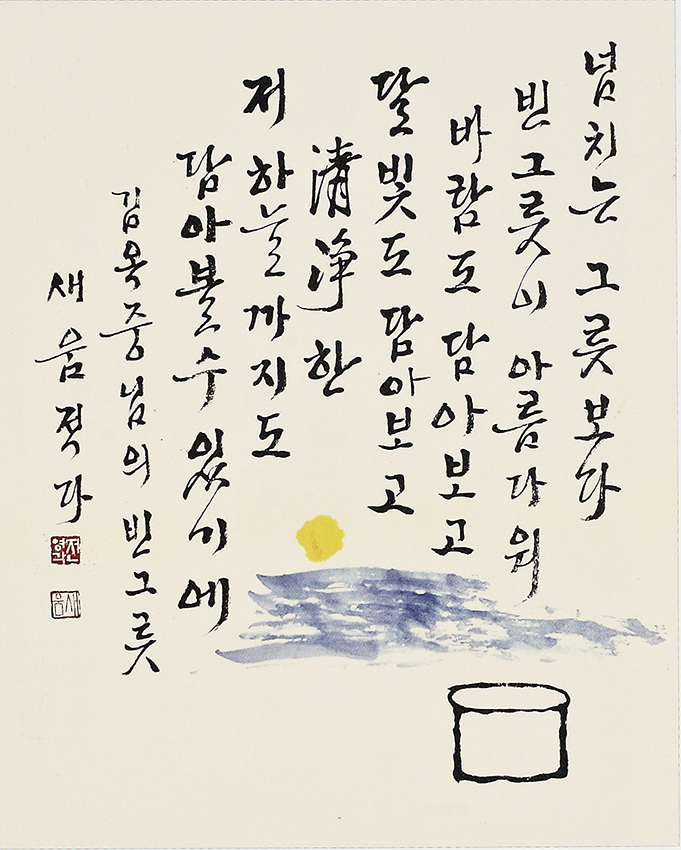 넘치는 그릇보다
빈그릇이 아름다워
바람도 담아보고
달빛도 담아보고
清淨한
저 하늘까지도
담아볼수 있기에
김옥중님의 빈그릇
새움 적다
새움